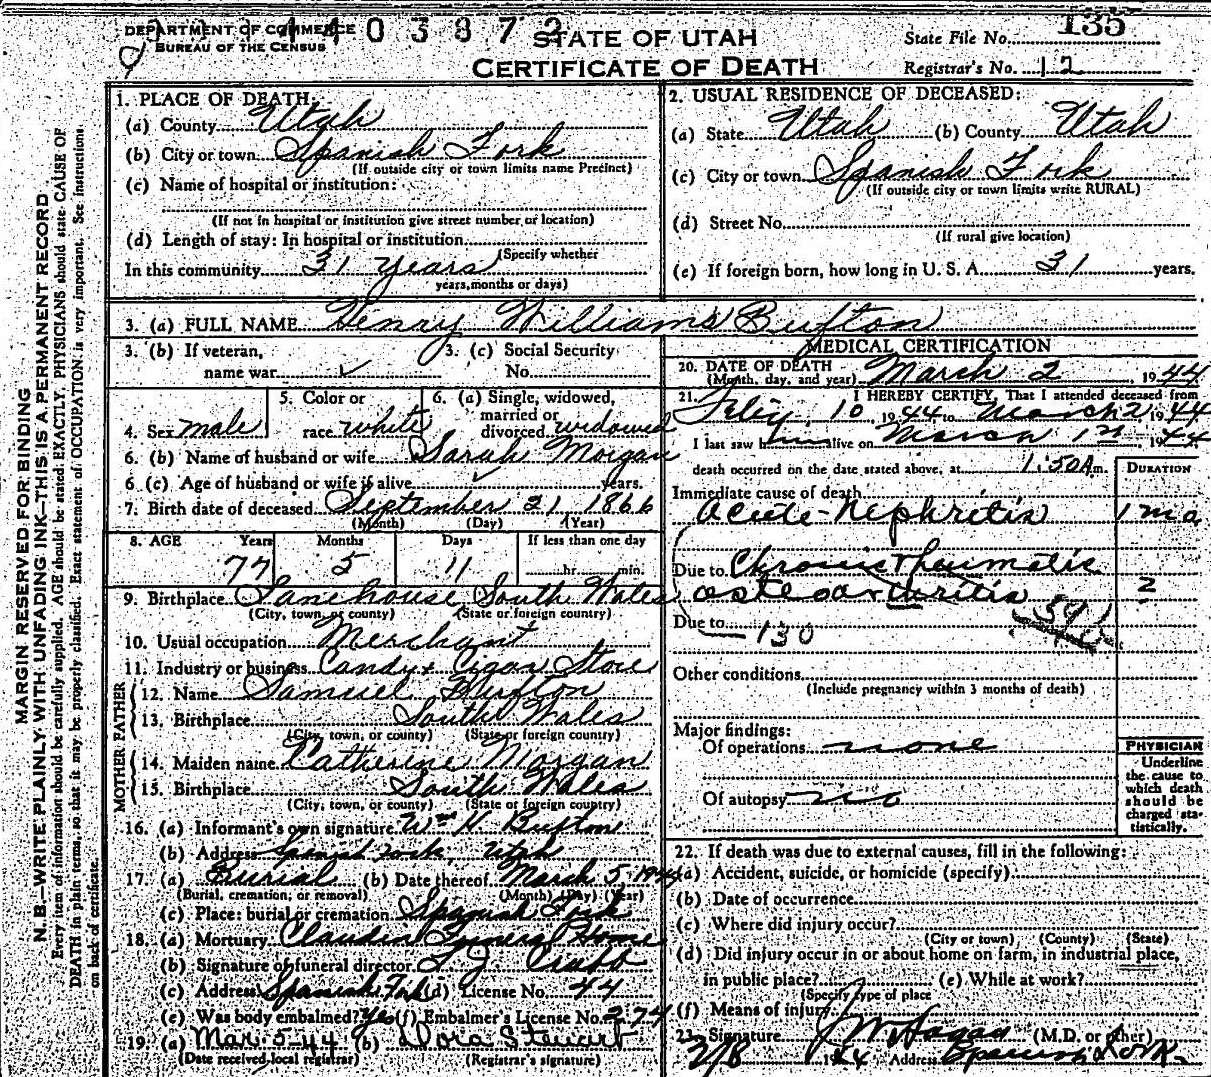 DEPARTMENT OF COMMERCE
BUREAU OF THE CENSUS
0 3 8 7 2
STATE OF UTAH
CERTIFICATE OF DEATH
State File No. 135
Registrar's No. 12
MARGIN RESERVED FOR BINDING
N. B.—WRITE PLAINLY WITH UNFADING INK—THIS IS A PERMANENT RECORD
Every item of information should be carefully supplied. AGE should be stated EXACTLY. PHYSICIANS should state CAUSE OF
DEATH in plain terms, so that it may be properly classified. Exact statement of OCCUPATION is very important. See instructions
on back of certificate.
1. PLACE OF DEATH:
(a) County Utah
(b) City or town Spanish Fork
(If outside city or town limits name Precinct)
(c) Name of hospital or institution:
(If not in hospital or institution give street number or location)
(d) Length of stay: In hospital or institution
(Specify whether
In this community 31 years
years, months or days)
2. USUAL RESIDENCE OF DECEASED:
(a) State Utah (b) County Utah
(c) City or town Spanish Fork
(If outside city or town limits write RURAL)
(d) Street No.
(If rural give location)
(e) If foreign born, how long in U. S. A. 31 years.
3. (a) FULL NAME Henry Williams Bufton
3. (b) If veteran,
name war
3. (c) Social Security
No.
4. Sex male
5. Color or
race white
6. (a) Single, widowed,
married or
divorced widowed
6. (b) Name of husband or wife Sarah Morgan
6. (c) Age of husband or wife if alive years.
7. Birth date of deceased September 21 1866
(Month) (Day) (Year)
8. AGE Years Months Days If less than one day
77 5 11 hr. min.
9. Birthplace South Wales
(City, town, or county) (State or foreign country)
10. Usual occupation Merchant
11. Industry or business Candy & Cigar Store
FATHER
12. Name Samuel Bufton
13. Birthplace South Wales
(City, town, or county) (State or foreign country)
MOTHER
14. Maiden name Catherine Morgan
15. Birthplace South Wales
(City, town, or county) (State or foreign country)
16. (a) Informant's own signature Wm H. Bufton
(b) Address Spanish Fork, Utah
17. (a) Burial (b) Date thereof March 5 1944
(Burial, cremation, or removal) (Month) (Day) (Year)
(c) Place: burial or cremation Spanish Fork
18. (a) Mortuary Claudin Funeral Home
(b) Signature of funeral director
(c) Address Spanish Fork (d) License No. 44
(e) Was body embalmed? Yes (f) Embalmer's License No. 274
19. (a) Mar. 5-44 (b) Dora Stewart
(Date received local registrar) (Registrar's signature)
MEDICAL CERTIFICATION
20. DATE OF DEATH
(Month, day, and year) March 2, 1944
21. I HEREBY CERTIFY, That I attended deceased from
Feby 10, 1944 to March 2, 1944
I last saw him alive on March 1st, 1944
death occurred on the date stated above, at 1:50 A.m.
DURATION
Immediate cause of death
Acute-Nephritis 1 mo
Due to Chronic Rheumatic
osteoarthritis 2
Due to
130
Other conditions
(Include pregnancy within 3 months of death)
Major findings:
Of operations none
Of autopsy no
PHYSICIAN
Underline
the cause to
which death
should be
charged sta-
tistically.
22. If death was due to external causes, fill in the following:
(a) Accident, suicide, or homicide (specify)
(b) Date of occurrence
(c) Where did injury occur?
(City or town) (County) (State)
(d) Did injury occur in or about home on farm, in industrial place,
in public place? (e) While at work?
(Specify type of place
(f) Means of injury
23. Signature (M.D. or other)
1944 Address Spanish Fork